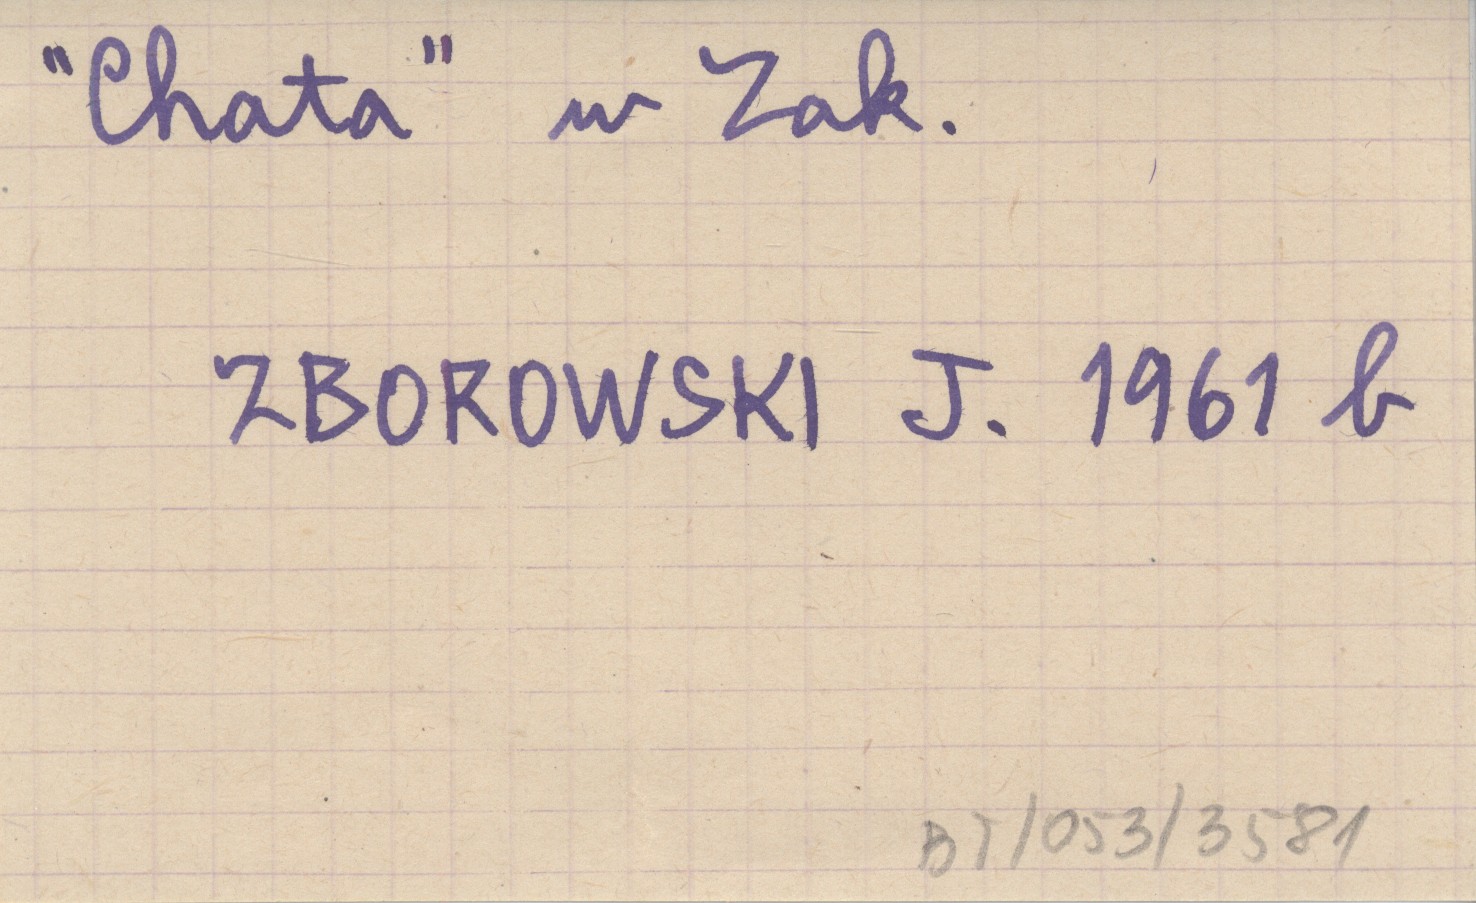 "Chata" w Zak.
ZBOROWSKI J. 1961 b
BT/053/3581